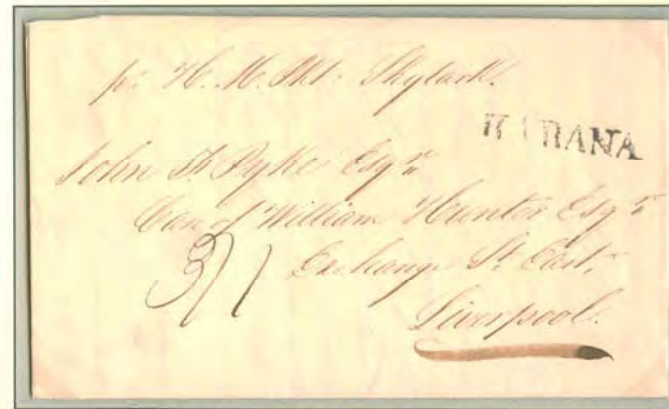 pr H. M. Pkt: Skylark.
HABANA
John St. Pyke Esqre
Care of William Hunter Esqre
Exchange St. East,
3/1
Liverpool.